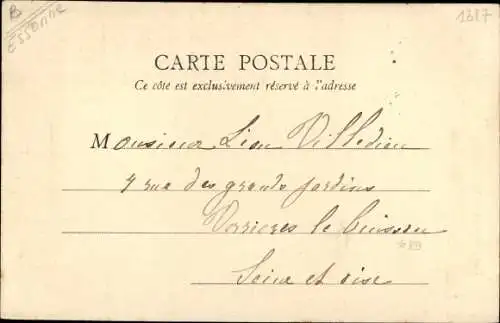 B
ESSONNE
1387
CARTE POSTALE
Ce côté est exclusivement réservé à l'adresse
Monsieur Léon Villedieu
7 rue des grands jardins
Verrieres le buisson
Seine et oise